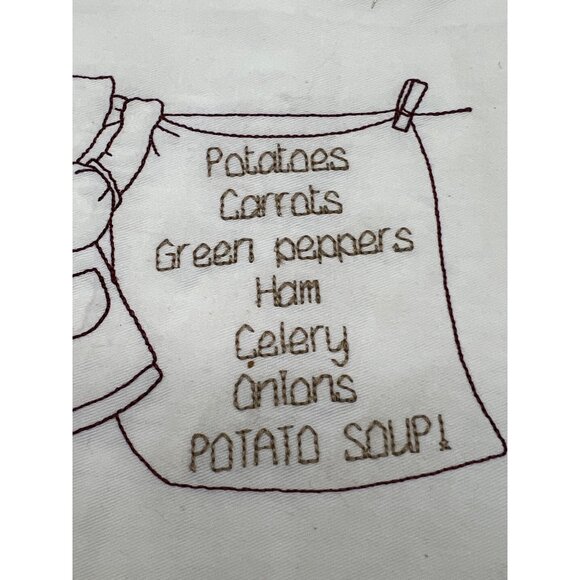 Potatoes
Carrots
Green peppers
Ham
Celery
Onions
POTATO SOUP!